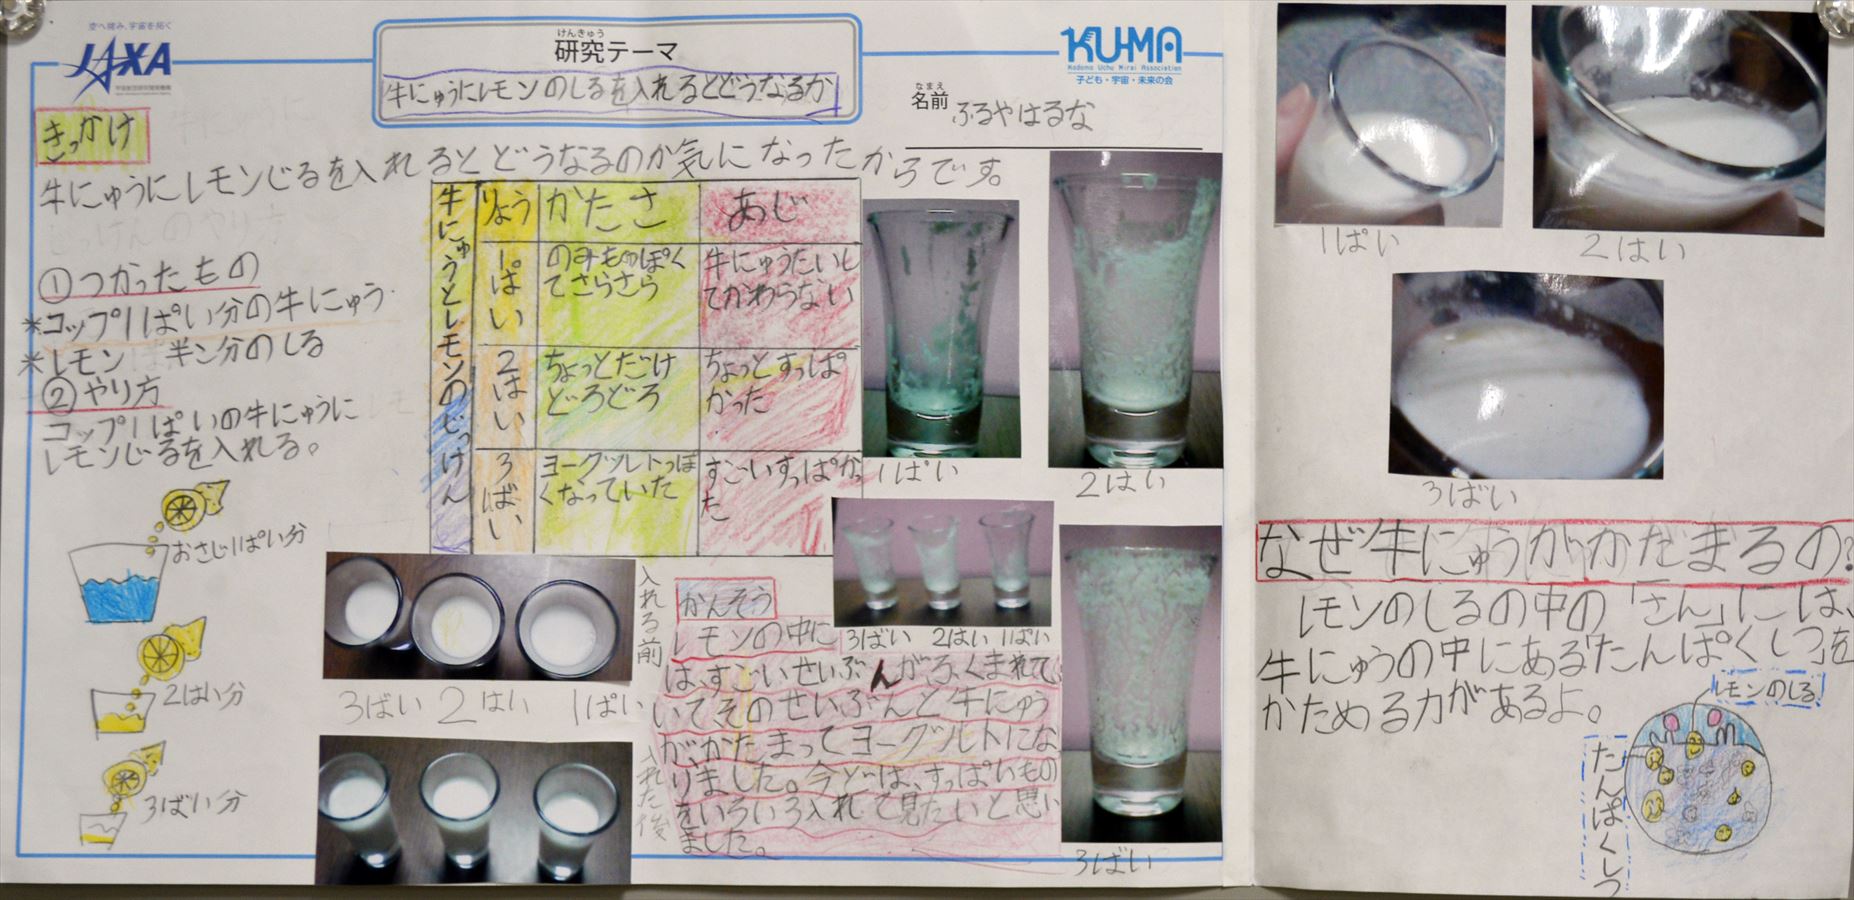 空へ挑み、宇宙を拓く
JAXA
宇宙航空研究開発機構
けんきゅう
研究テーマ
牛にゅうにレモンのしるを入れるとどうなるか
KU-MA
Kodomo Uchu Mirai Association
子ども・宇宙・未来の会
なまえ
名前 ふるやはるな
きっかけ
牛にゅうにレモンじるを入れるとどうなるのか気になったからです。
①つかったもの
*コップ1ぱい分の牛にゅう
*レモン半こ分のしる
②やり方
コップ1ぱいの牛にゅうに
レモンじるを入れる。
おさじ1ぱい分
2はい分
3ばい分
牛にゅうとレモンのじっけん
りょう
かたさ
あじ
1ぱい
のみものっぽく
てさらさら
牛にゅうたいし
てかわらない
2はい
ちょっとだけ
どろどろ
ちょっとすっぱ
かった
3ばい
ヨーグルトっぽ
くなっていた
すごいすっぱかっ
た
1ぱい
2はい
3ばい 2はい 1ぱい
3ばい
入れる前
3ばい 2はい 1ぱい
入れた後
かんそう
レモンの中に
は、すごいせいぶんがふくまれて
いてそのせいぶんと牛にゅう
がかたまってヨーグルトにな
りました。今どは、すっぱいもの
をいろいろ入れて見たいと思い
ました。
1ぱい
2はい
3ばい
なぜ牛にゅうがかたまるの?
レモンのしるの中の「さん」には、
牛にゅうの中にある「たんぱくしつ」を
かためる力があるよ。
レモンのしる
たんぱくしつ